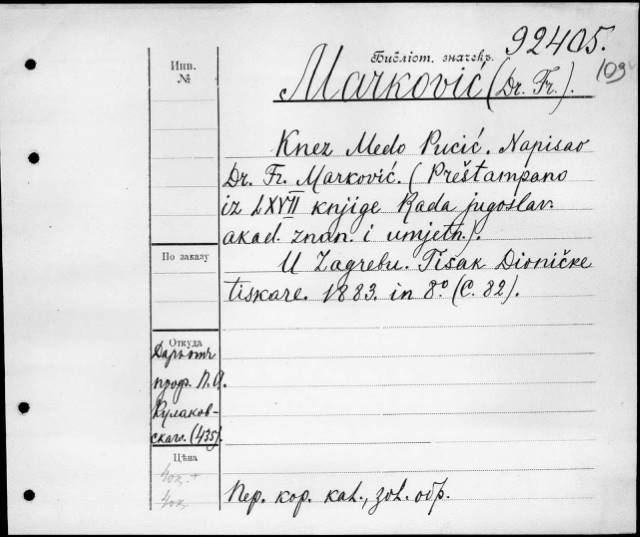 92405.
Библіот. значекъ.
Инв.
№
Marković (Dr. Fr.).
109
Knez Medo Pucić. Napisao
Dr. Fr. Marković. (Preštampano
iz LXVII knjige Rada jugoslav.
akad. znan. i umjetn.).
По заказу
U Zagrebu. Tisak Dioničke
tiskare. 1883. in 8º (С. 82).
Откуда
Даръ отъ
проф. П. А.
Кулаков-
скаго. (435).
Цѣна
40к. +
40к.
Пер. кор. кал., зол. обр.